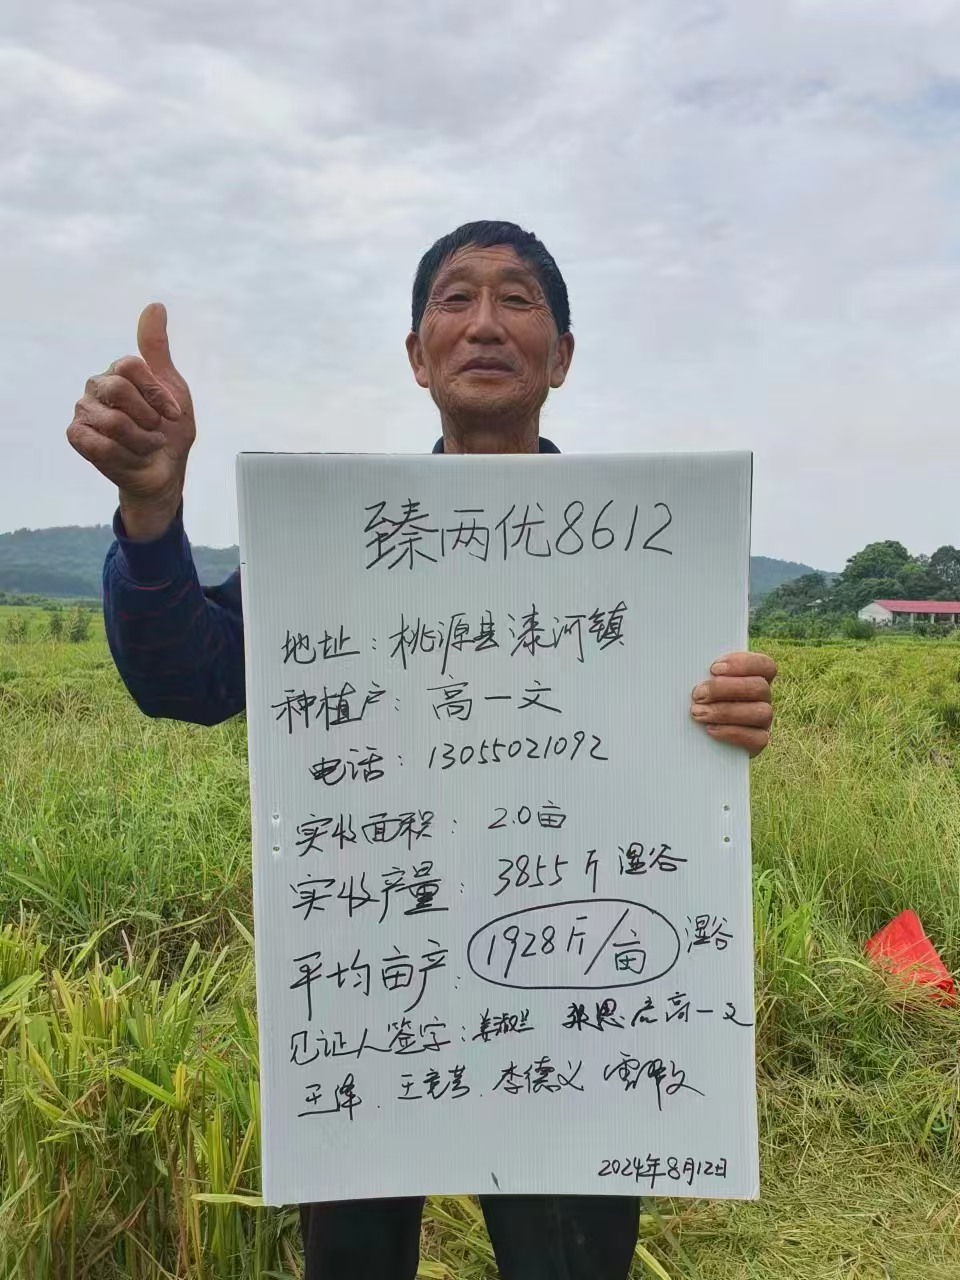 臻两优8612
地址：桃源县漆河镇
种植户：高一文
电话：13055021092
实收面积：2.0亩
实收产量：3855斤 湿谷
平均亩产：1928斤/亩 湿谷
见证人签字：姜淑兰 高一文
王泽、李德义
2024年8月12日